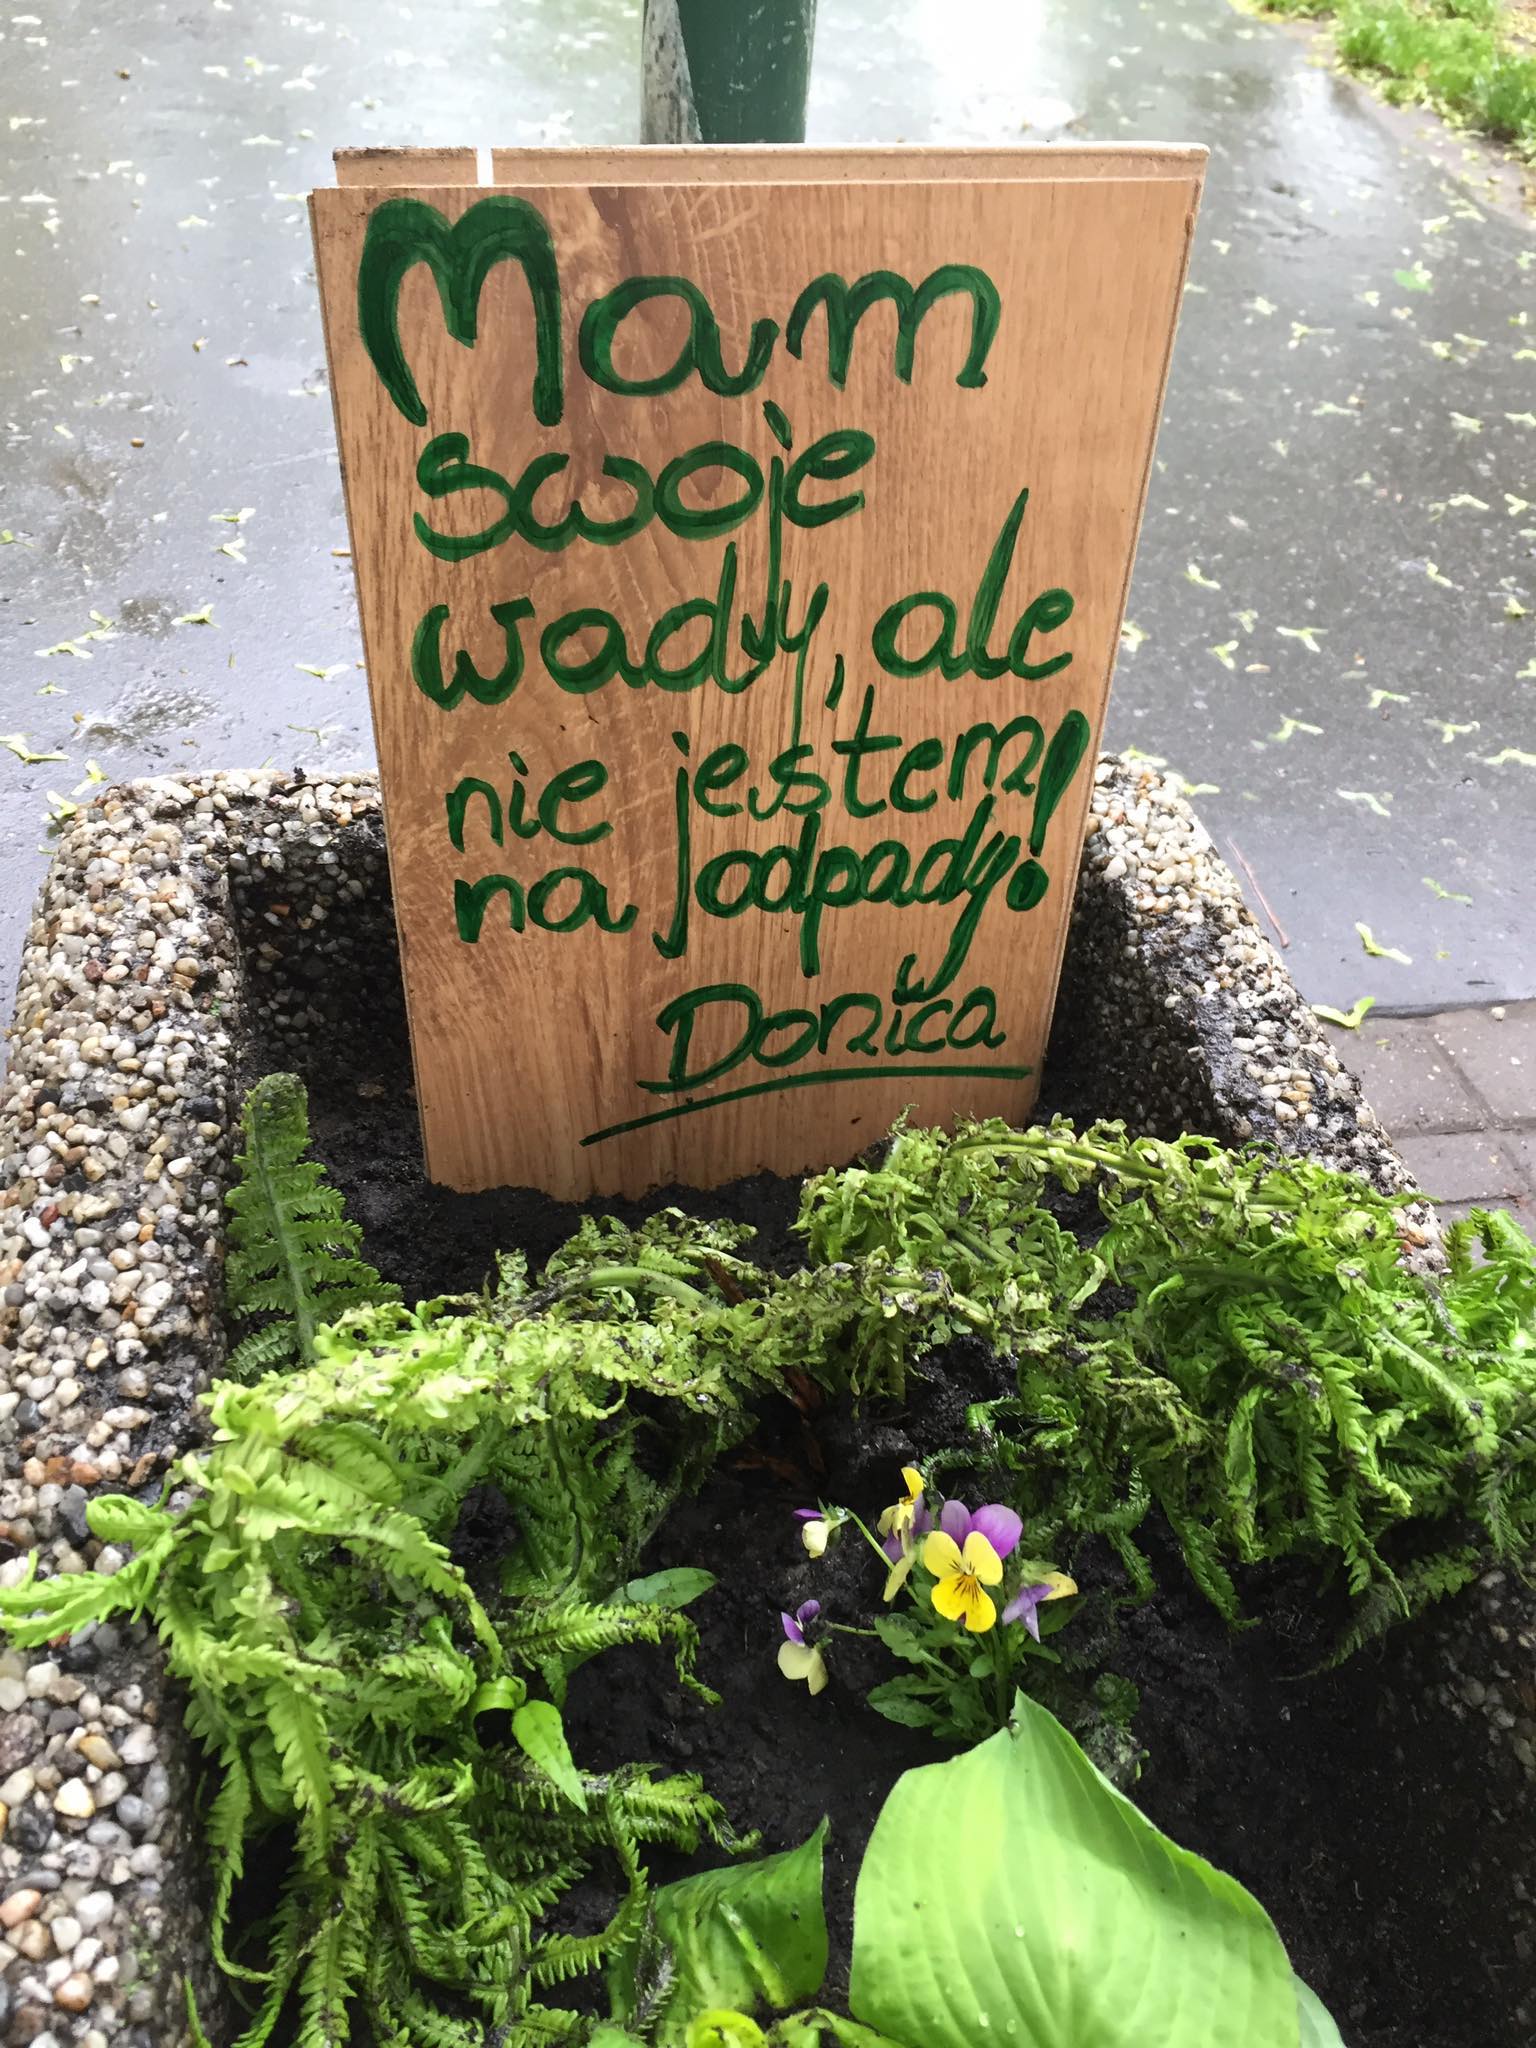 Mam
swoje
wady, ale
nie jestem
na odpady!
Donica